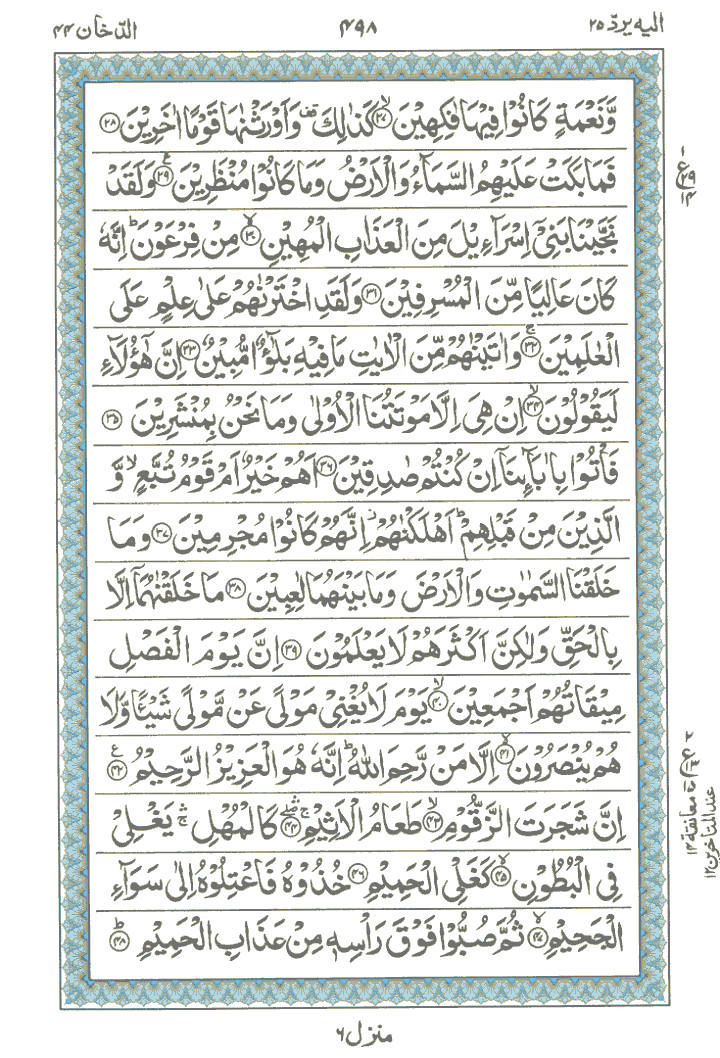 الیه یردّ ۲۵
۴۹۸
الدّخان ۴۴
وَّنَعْمَةٍ كَانُوْا فِيْهَا فٰكِهِيْنَ ۙ﴿۲۷﴾ كَذٰلِكَ ۫ وَاَوْرَثْنٰهَا قَوْمًا اٰخَرِيْنَ ﴿۲۸﴾
فَمَا بَكَتْ عَلَيْهِمُ السَّمَآءُ وَالْاَرْضُ وَمَا كَانُوْا مُنْظَرِيْنَ ﴿۲۹﴾ۧ وَلَقَدْ
نَجَّيْنَا بَنِيْٓ اِسْرَآءِيْلَ مِنَ الْعَذَابِ الْمُهِيْنِ ۙ﴿۳۰﴾ مِنْ فِرْعَوْنَ ؕ اِنَّهٗ
كَانَ عَالِيًا مِّنَ الْمُسْرِفِيْنَ ﴿۳۱﴾ وَلَقَدِ اخْتَرْنٰهُمْ عَلٰى عِلْمٍ عَلَى
الْعٰلَمِيْنَ ۚ﴿۳۲﴾ وَاٰتَيْنٰهُمْ مِّنَ الْاٰيٰتِ مَا فِيْهِ بَلٰٓؤٌا مُّبِيْنٌ ﴿۳۳﴾ اِنَّ هٰٓؤُلَآءِ
لَيَقُوْلُوْنَ ۙ﴿۳۴﴾ اِنْ هِيَ اِلَّا مَوْتَتُنَا الْاُوْلٰى وَمَا نَحْنُ بِمُنْشَرِيْنَ ﴿۳۵﴾
فَاْتُوْا بِاٰبَآئِنَآ اِنْ كُنْتُمْ صٰدِقِيْنَ ﴿۳۶﴾ اَهُمْ خَيْرٌ اَمْ قَوْمُ تُبَّعٍ ۙ وَّ
الَّذِيْنَ مِنْ قَبْلِهِمْ ؕ اَهْلَكْنٰهُمْ ۫ اِنَّهُمْ كَانُوْا مُجْرِمِيْنَ ﴿۳۷﴾ وَمَا
خَلَقْنَا السَّمٰوٰتِ وَالْاَرْضَ وَمَا بَيْنَهُمَا لٰعِبِيْنَ ﴿۳۸﴾ مَا خَلَقْنٰهُمَآ اِلَّا
بِالْحَقِّ وَلٰكِنَّ اَكْثَرَهُمْ لَا يَعْلَمُوْنَ ﴿۳۹﴾ اِنَّ يَوْمَ الْفَصْلِ
مِيْقَاتُهُمْ اَجْمَعِيْنَ ۙ﴿۴۰﴾ يَوْمَ لَا يُغْنِيْ مَوْلًى عَنْ مَّوْلًى شَيْـًٔا وَّلَا
هُمْ يُنْصَرُوْنَ ۙ﴿۴۱﴾ اِلَّا مَنْ رَّحِمَ اللّٰهُ ؕ اِنَّهٗ هُوَ الْعَزِيْزُ الرَّحِيْمُ ﴿۴۲﴾ۧ
اِنَّ شَجَرَتَ الزَّقُّوْمِ ۙ﴿۴۳﴾ طَعَامُ الْاَثِيْمِ ۛۖۚ﴿۴۴﴾ كَالْمُهْلِ ۛۚ يَغْلِيْ
فِي الْبُطُوْنِ ۙ﴿۴۵﴾ كَغَلْيِ الْحَمِيْمِ ﴿۴۶﴾ خُذُوْهُ فَاعْتِلُوْهُ اِلٰى سَوَآءِ
الْجَحِيْمِ ۙ﴿۴۷﴾ ثُمَّ صُبُّوْا فَوْقَ رَاْسِهٖ مِنْ عَذَابِ الْحَمِيْمِ ؕ﴿۴۸﴾
معانقة ۱۴
عند المتاخرین ۱۲
منزل ۶